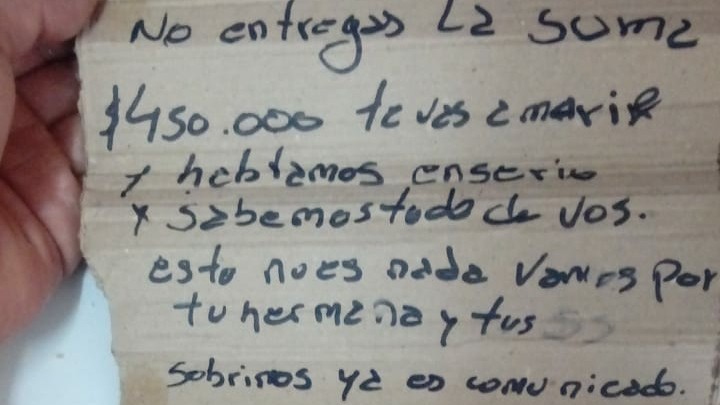 No entregas La suma
$450.000 te vas a marir
y hablamos enserio
y sabemos todo de vos.
esto no es nada Vamos por
tu hermana y tus
sobrinos ya es comunicado.